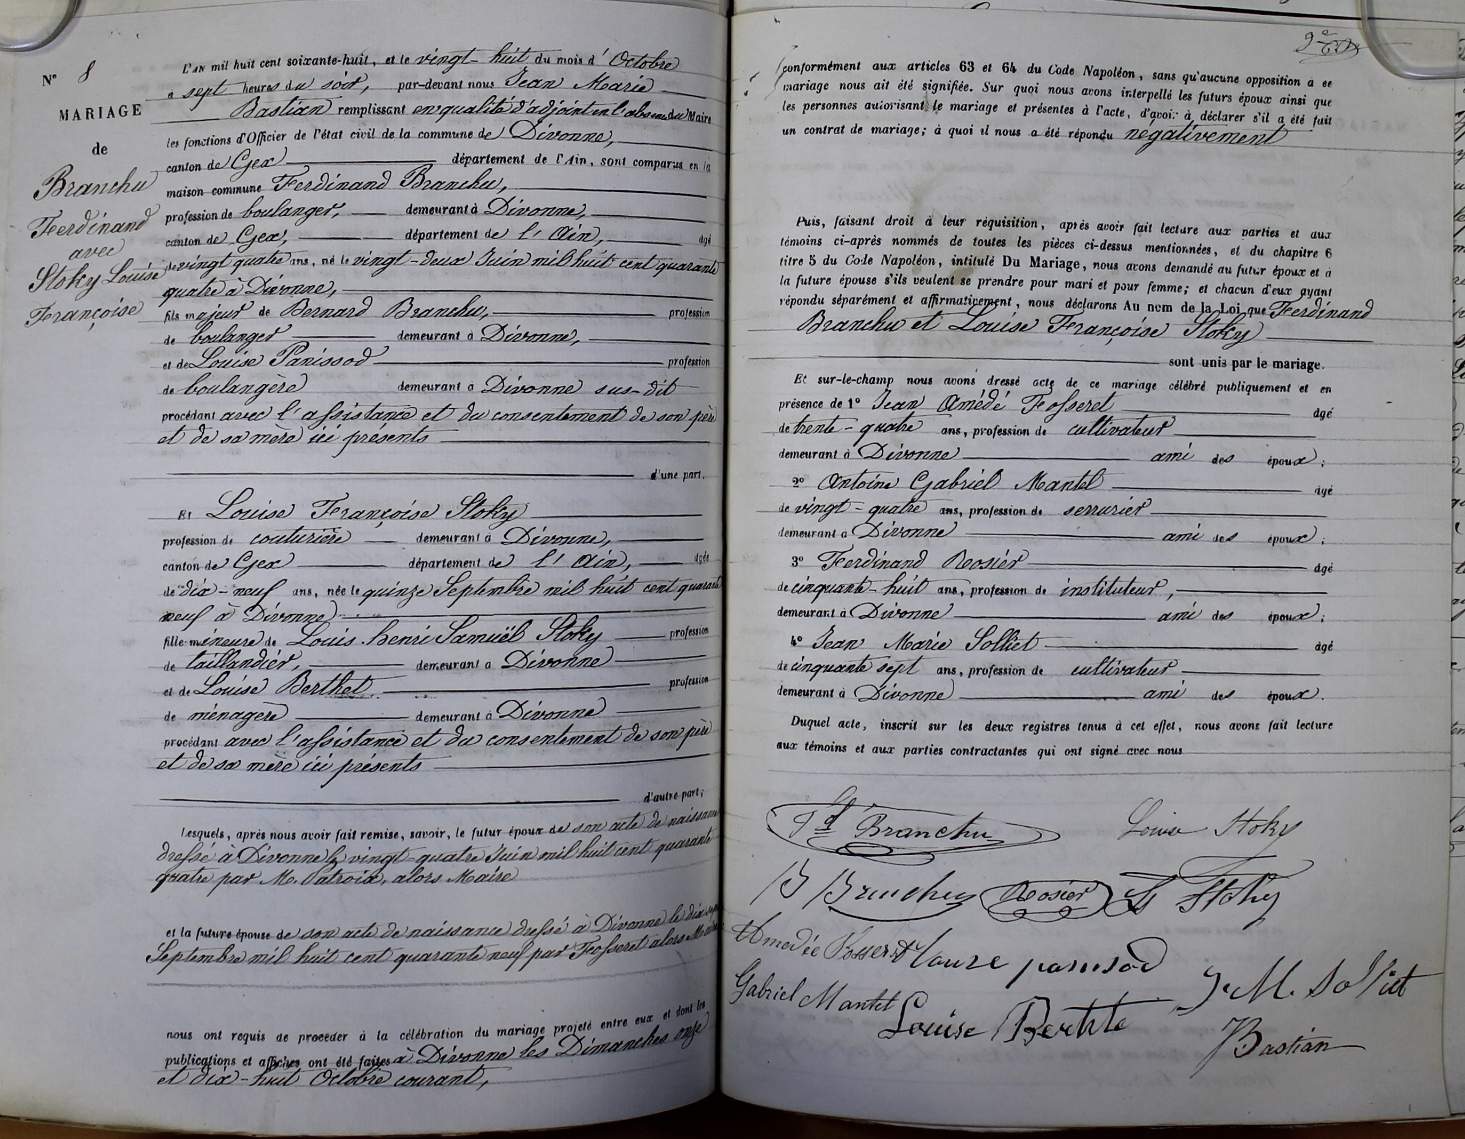 N° 8
MARIAGE
de
Branchu
Ferdinand
avec
Stoky Louise
Françoise
L'AN mil huit cent soixante-huit, et le vingt-huit du mois d'Octobre
à sept heures du soir, par-devant nous Jean Marie
Bastian remplissant en qualité d'adjoint en l'absence du Maire
les fonctions d'Officier de l'état civil de la commune de Divonne,
canton de Gex département de l'Ain, sont comparus en la
maison commune Ferdinand Branchu,
profession de boulanger, demeurant à Divonne,
canton de Gex, département de l'Ain, âgé
de vingt quatre ans, né le vingt-deux Juin mil huit cent quarante
quatre à Divonne,
fils majeur de Bernard Branchu, profession
de boulanger demeurant à Divonne,
et de Louise Panissod profession
de boulangère demeurant à Divonne sus-dit
procédant avec l'assistance et du consentement de son père
et de sa mère ici présents
d'une part.
Et Louise Françoise Stoky
profession de couturière demeurant à Divonne,
canton de Gex département de l'Ain, âgée
de dix-neuf ans, née le quinze Septembre mil huit cent quarante
neuf à Divonne
fille mineure de Louis henri Samuël Stoky profession
de taillandier, demeurant à Divonne
et de Louise Berthet profession
de ménagère demeurant à Divonne
procédant avec l'assistance et du consentement de son père
et de sa mère ici présents
d'autre part;
Lesquels, après nous avoir fait remise, savoir, le futur époux de son acte de naissance
dressé à Divonne le vingt-quatre Juin mil huit cent quarante
quatre par M. Patroix, alors Maire
et la future épouse de son acte de naissance dressé à Divonne le dix-sept
Septembre mil huit cent quarante neuf par Fosseret alors Maire
nous ont requis de procéder à la célébration du mariage projeté entre eux et dont les
publications et affiches ont été faites à Divonne les Dimanches onze
et dix-huit Octobre courant,
conformément aux articles 63 et 64 du Code Napoléon, sans qu'aucune opposition à ce
mariage nous ait été signifiée. Sur quoi nous avons interpellé les futurs époux ainsi que
les personnes autorisant le mariage et présentes à l'acte, d'avoir à déclarer s'il a été fait
un contrat de mariage; à quoi il nous a été répondu négativement
Puis, faisant droit à leur réquisition, après avoir fait lecture aux parties et aux
témoins ci-après nommés de toutes les pièces ci-dessus mentionnées, et du chapitre 6
titre 5 du Code Napoléon, intitulé Du Mariage, nous avons demandé au futur époux et à
la future épouse s'ils veulent se prendre pour mari et pour femme; et chacun d'eux ayant
répondu séparément et affirmativement, nous déclarons Au nom de la Loi, que Ferdinand
Branchu et Louise Françoise Stoky
sont unis par le mariage.
Et sur-le-champ nous avons dressé acte de ce mariage célébré publiquement et en
présence de 1° Jean Amédé Fosseret âgé
de trente-quatre ans, profession de cultivateur
demeurant à Divonne ami des époux;
2° Antoine Gabriel Mantel âgé
de vingt-quatre ans, profession de serrurier
demeurant à Divonne ami des époux;
3° Ferdinand Rosier âgé
de cinquante-huit ans, profession de instituteur,
demeurant à Divonne ami des époux;
4° Jean Marie Solliet âgé
de cinquante sept ans, profession de cultivateur
demeurant à Divonne ami des époux.
Duquel acte, inscrit sur les deux registres tenus à cet effet, nous avons fait lecture
aux témoins et aux parties contractantes qui ont signé avec nous
Fd Branchu Louise Stoky
B Branchu Rosier Stoky
Amédée Fosseret Louise panisod
Gabriel Mantel J. M. Solliet
Louise Berthet
Bastian